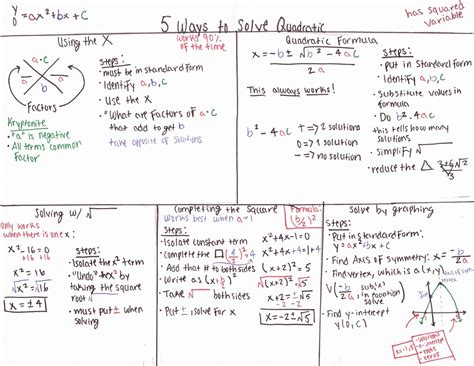 y
0 = ax²+bx+c
5 Ways to Solve Quadratic
has squared
variable
Using the X
works 90%
of the time
a·c
b
Factors
Kryptonite
• "a" is negative
• All terms common
Factor
Steps:
• must be in standard form
• Identify a,b,c
• Use the X
• "What are factors of a·c
that add to get b
take opposite of solutions
Quadratic Formula
x = -b ± √b² - 4ac
2a
This always works!
b² - 4ac
+ => 2 solutions
0 => 1 solution
- => no solutions
steps:
• put in Standard form
• Identify a,b,c
• Substitute values in
formula
• Do b²-4ac
this tells how many
solutions
• simplify √
• reduce the
Solving w/ √
Only works
when there is one x:
x² - 16 = 0
+16 +16
x² = 16
√x² = √16
x = ±4
Steps:
• Isolate the x² term
• "Undo" the x² by
taking the square
root √
• Put ± when
solving
Completing the Square
Works best when a=1
Formula:
(b/2)²
Steps:
• Isolate constant term
• Complete the □
• Add that # to both sides
• Write as (x+b/2)²
• Take √ both sides
• Put ±, solve for x
x²+4x-1=0
x²+4x =1
(x+2)² = 5
√(x+2)² = √5
x+2 = ±√5
-2 -2
x = -2 ± √5
Solve by graphing
Steps:
• Put in Standard form:
y = ax²+bx+c
• Find Axis of Symmetry: x = -b
2a
• Find vertex, which is a (x,y)
• Find y-intercept
y(0,c)